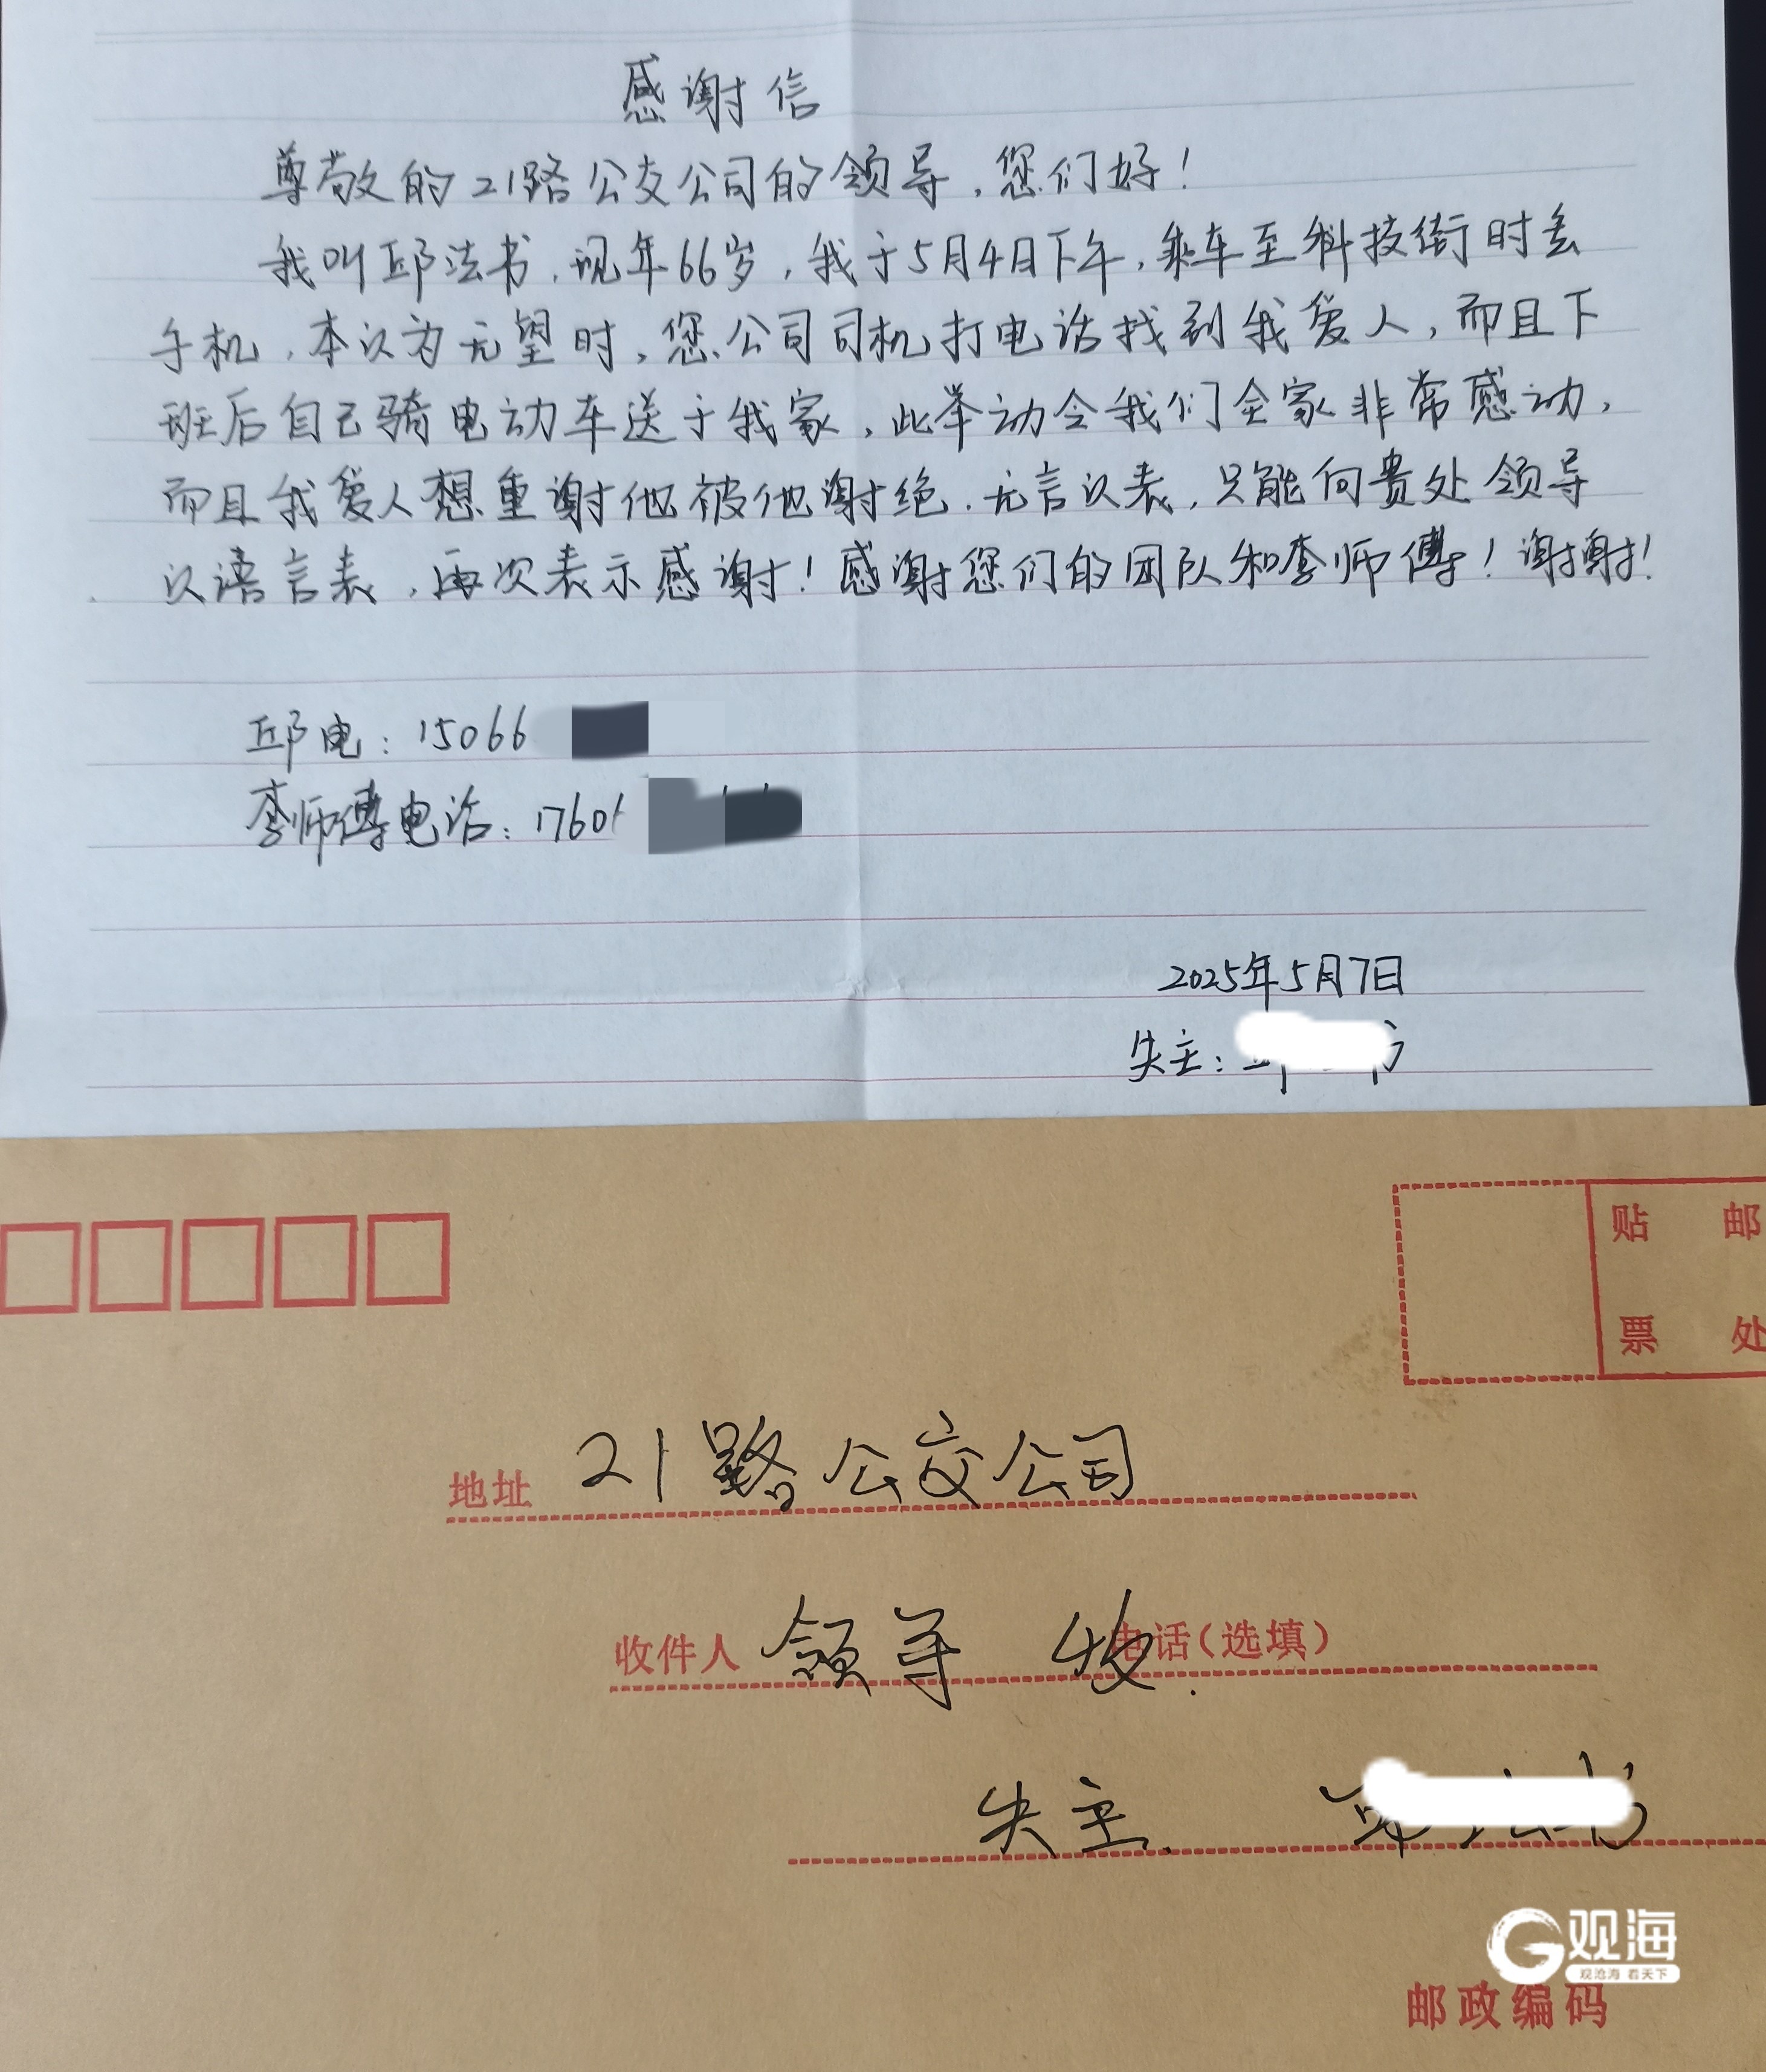 感谢信
尊敬的21路公交公司的领导，您们好！
我叫邱法书，现年66岁，我于5月4日下午，乘车至科技街时丢
手机，本以为无望时，您公司司机打电话找到我爱人，而且下
班后自己骑电动车送于我家，此举动令我们全家非常感动，
而且我爱人想重谢他被他谢绝，无言以表，只能向贵处领导
以语言表，再次表示感谢！感谢您们的团队和李师傅！谢谢！
邱电：15066
李师傅电话：1760
2025年5月7日
失主：
贴 邮
票 处
地址 21路公交公司
收件人 领导 收 电话（选填）
失主
观海
观沧海 看天下
邮政编码